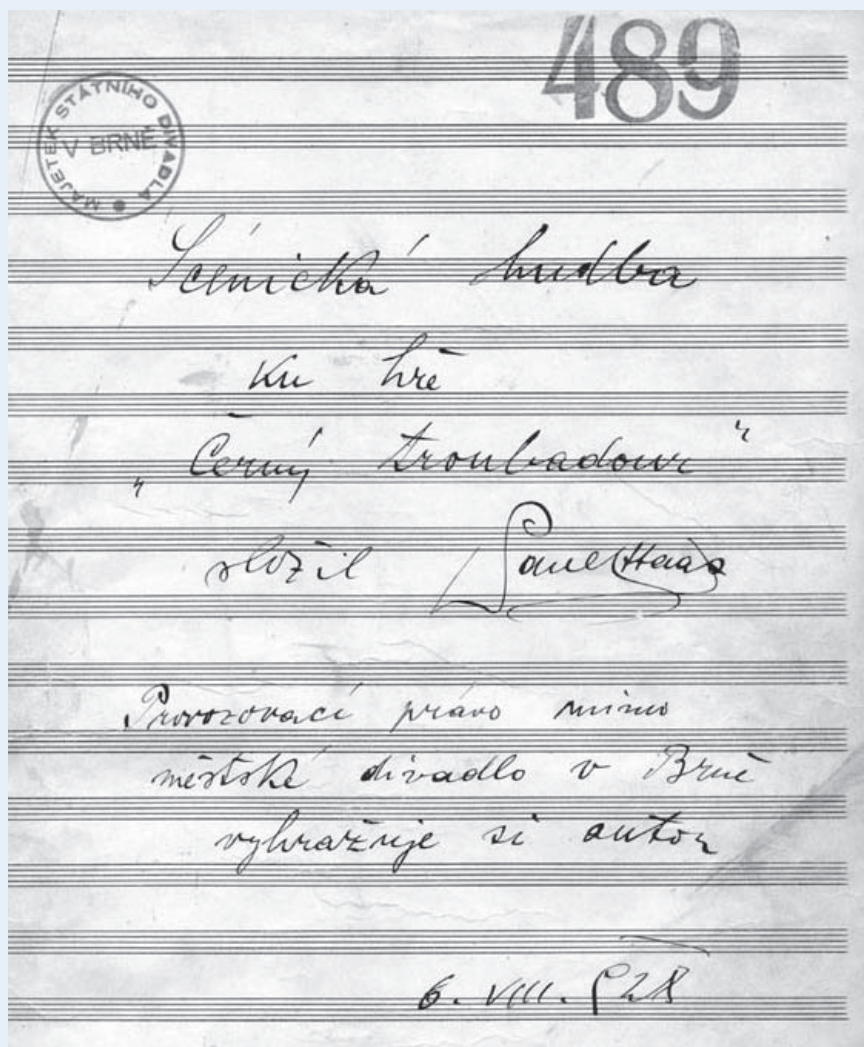 489
MAJETEK STÁTNÍHO DIVADLA
V BRNĚ
Scénická hudba
ku hře
„Černý troubadour“
složil Pavel Haas
Provozovací právo mimo
městské divadlo v Brně
vyhražuje si autor
6. VIII. 928